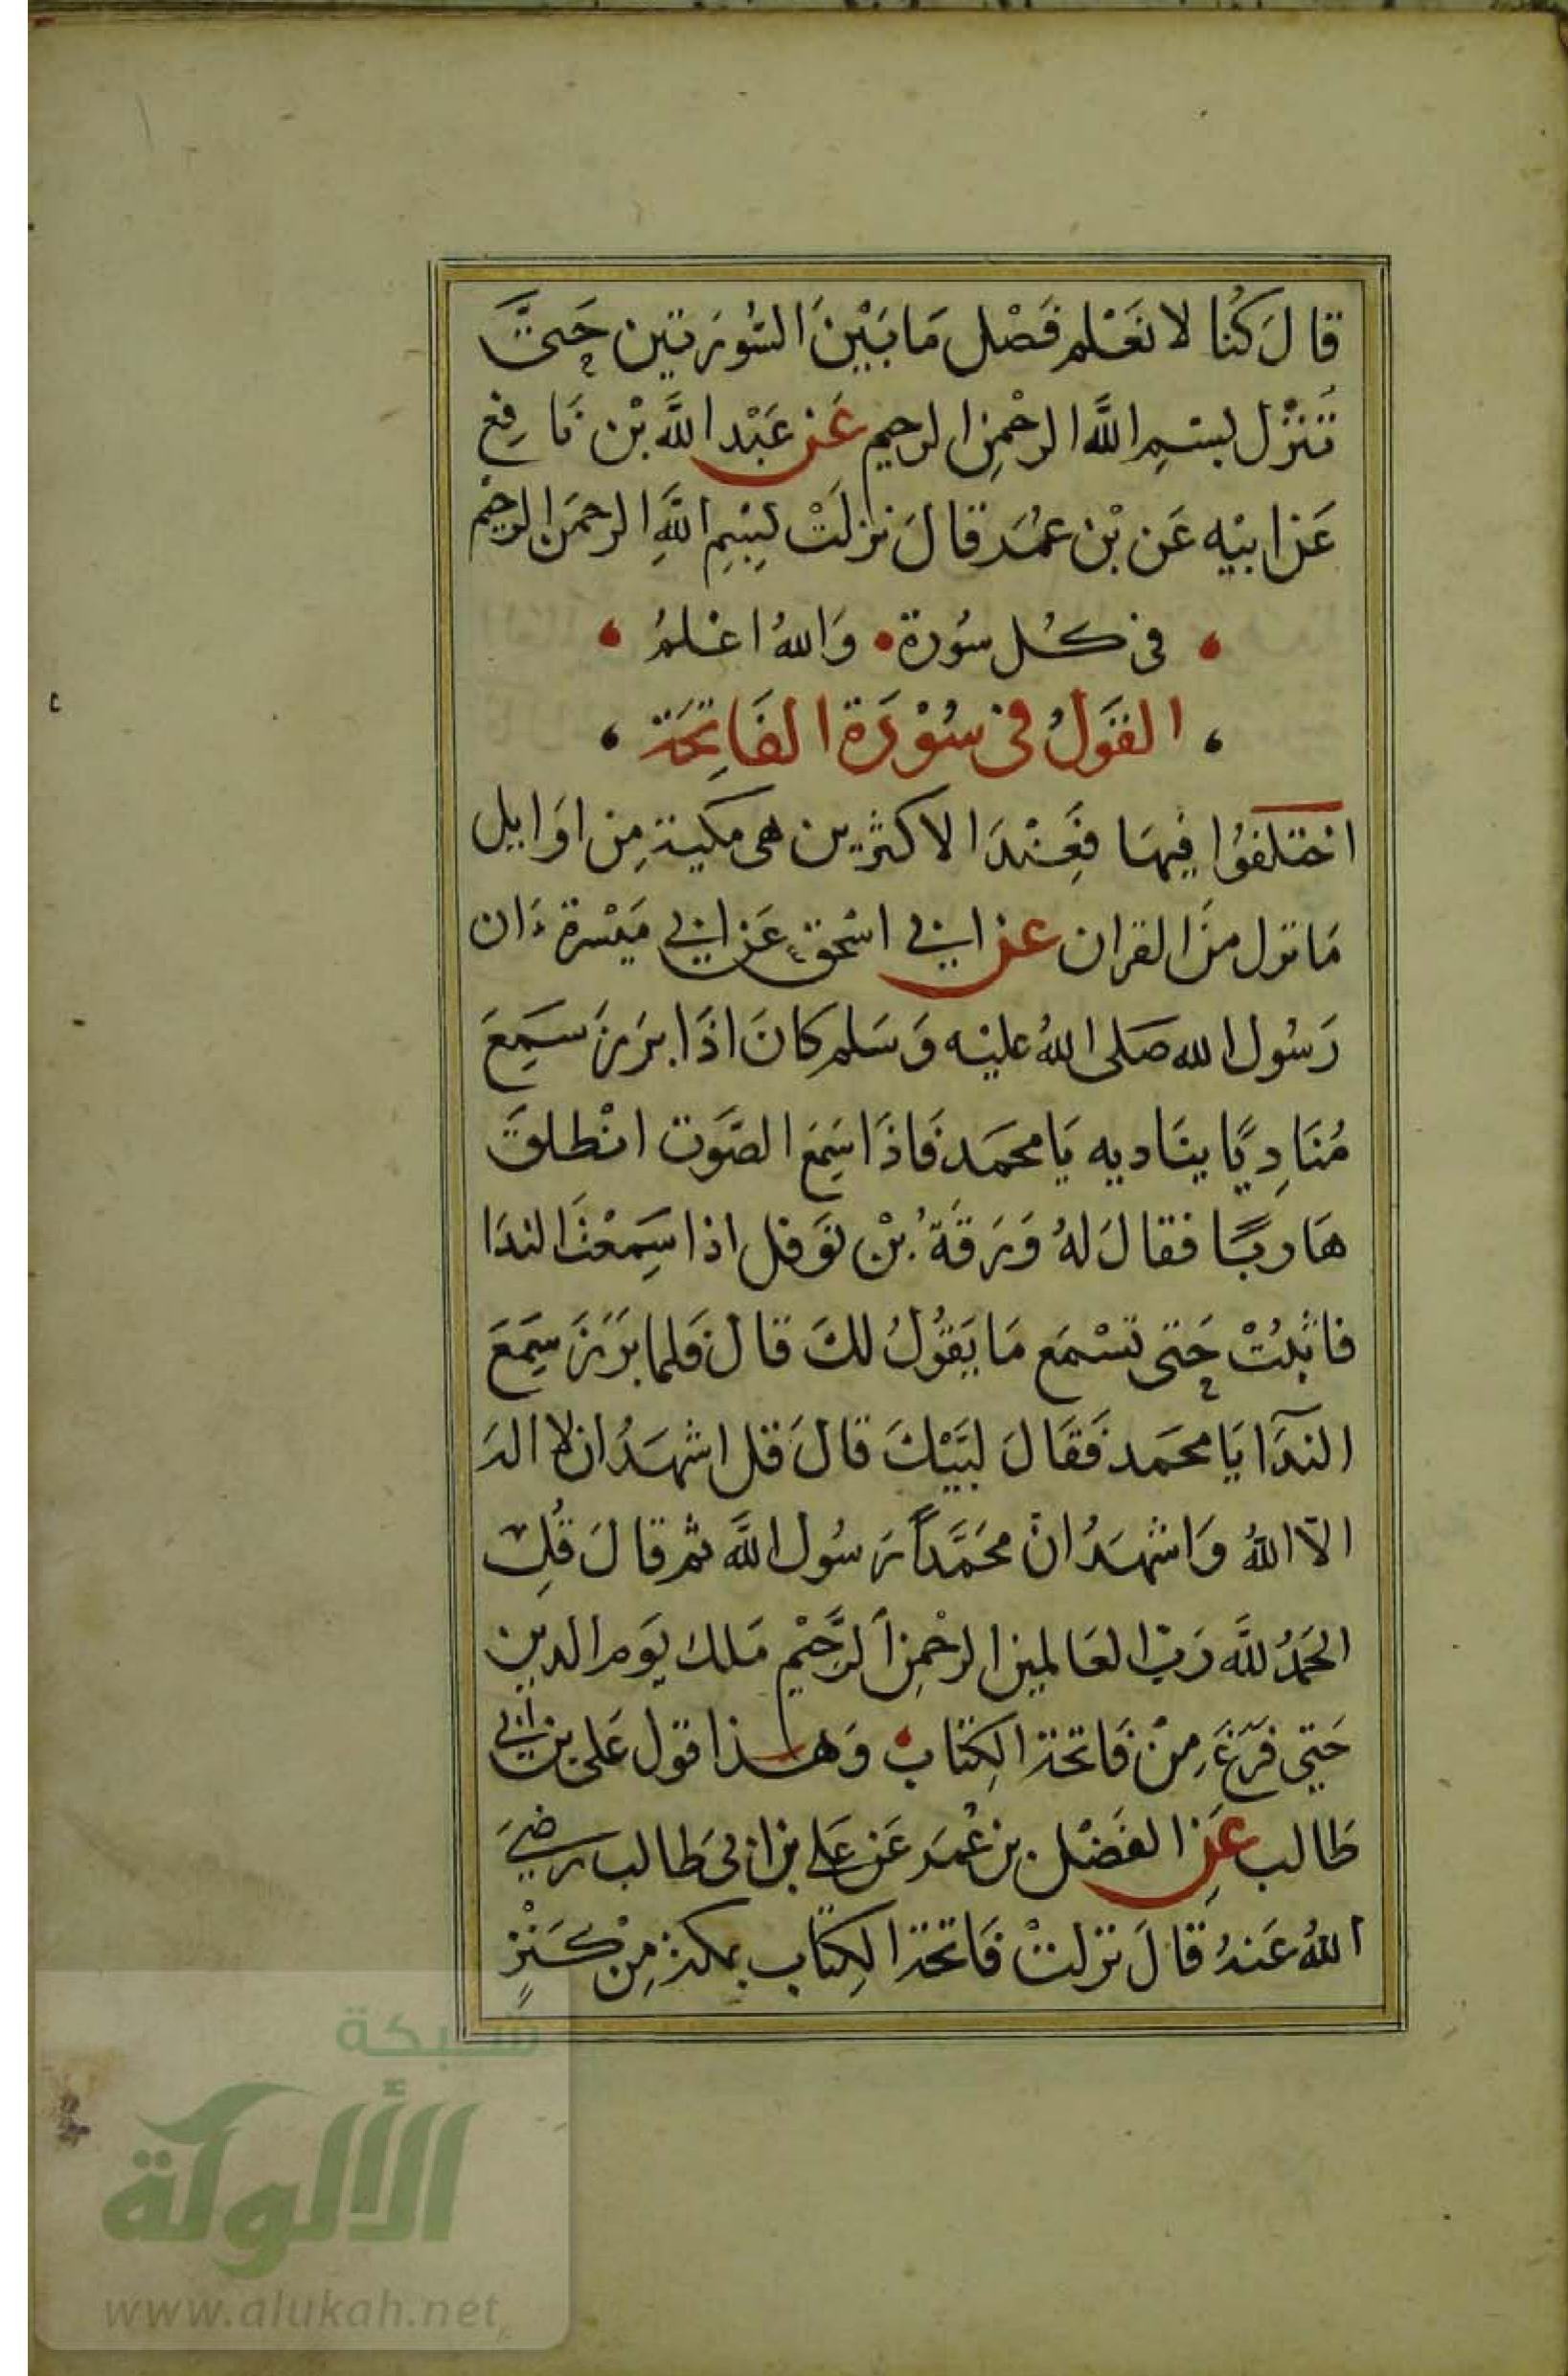 قَالَ كُنا لا نَعْلم فَصْل مَا بَيْنَ السُّورَتين حَتَّى
تَنْزل بسْمِ اللَّه الرحْمنِ الرحيم عَن عَبْد اللَّه بْن نَافِع
عَن ابيْه عَن بْن عمُرَ قالَ نزلَتْ بِسْمِ اللَّهِ الرحمَن الرحيم
في كُل سوُرة وَاللهُ اعْلمُ
القَولُ في سُوْرَة الفَاتِحَة
اختلفوُا فيهَا فَعِنْدَ الاكثرين هي مكية مِن اوَايل
مَا نزل منَ القران عن ابي اسْحق عَن ابي مَيْسرة ءَان
رَسُول الله صَلى اللهُ عليْه وَسَلم كانَ اذَا برَزَ سَمِعَ
مُنَادِيًا ينَاديه يَا محمَد فَاذَا سَمِعَ الصَّوت انْطلقَ
هَاربًا فقالَ لهُ وَرَقَةُ بْن نوَفل اذا سَمِعْتَ الندَا
فاثبُتْ حَتى تسْمَع مَا يَقوُلُ لكَ قالَ فَلما برَزَ سَمِعَ
الندَآ يَا محمَد فَقَالَ لبَيْكَ قالَ قل اشهَدُ ان لا اله
الآ اللهُ وَاشهَدُ انَّ محَمَّداً رَسُول اللَّه ثم قالَ قُلِ
الحَمْدُ للَّه رَبّ العَالمين الرحْمنِ الرَّحِيْم مَلك يَوم الدين
حَتى فرَغَ مِنْ فَاتحة الكِتاب وَهذا قول عَلى بن ابي
طَالب عَنِ الفَضْل بن عُمَر عَن عَلي بن ابي طَالب رَضيَ
اللهُ عَنهُ قَالَ نزلتْ فَاتحة الكِتاب بمكة مِنْ كَنْزٍ
شبكة
الألوكة
www.alukah.net